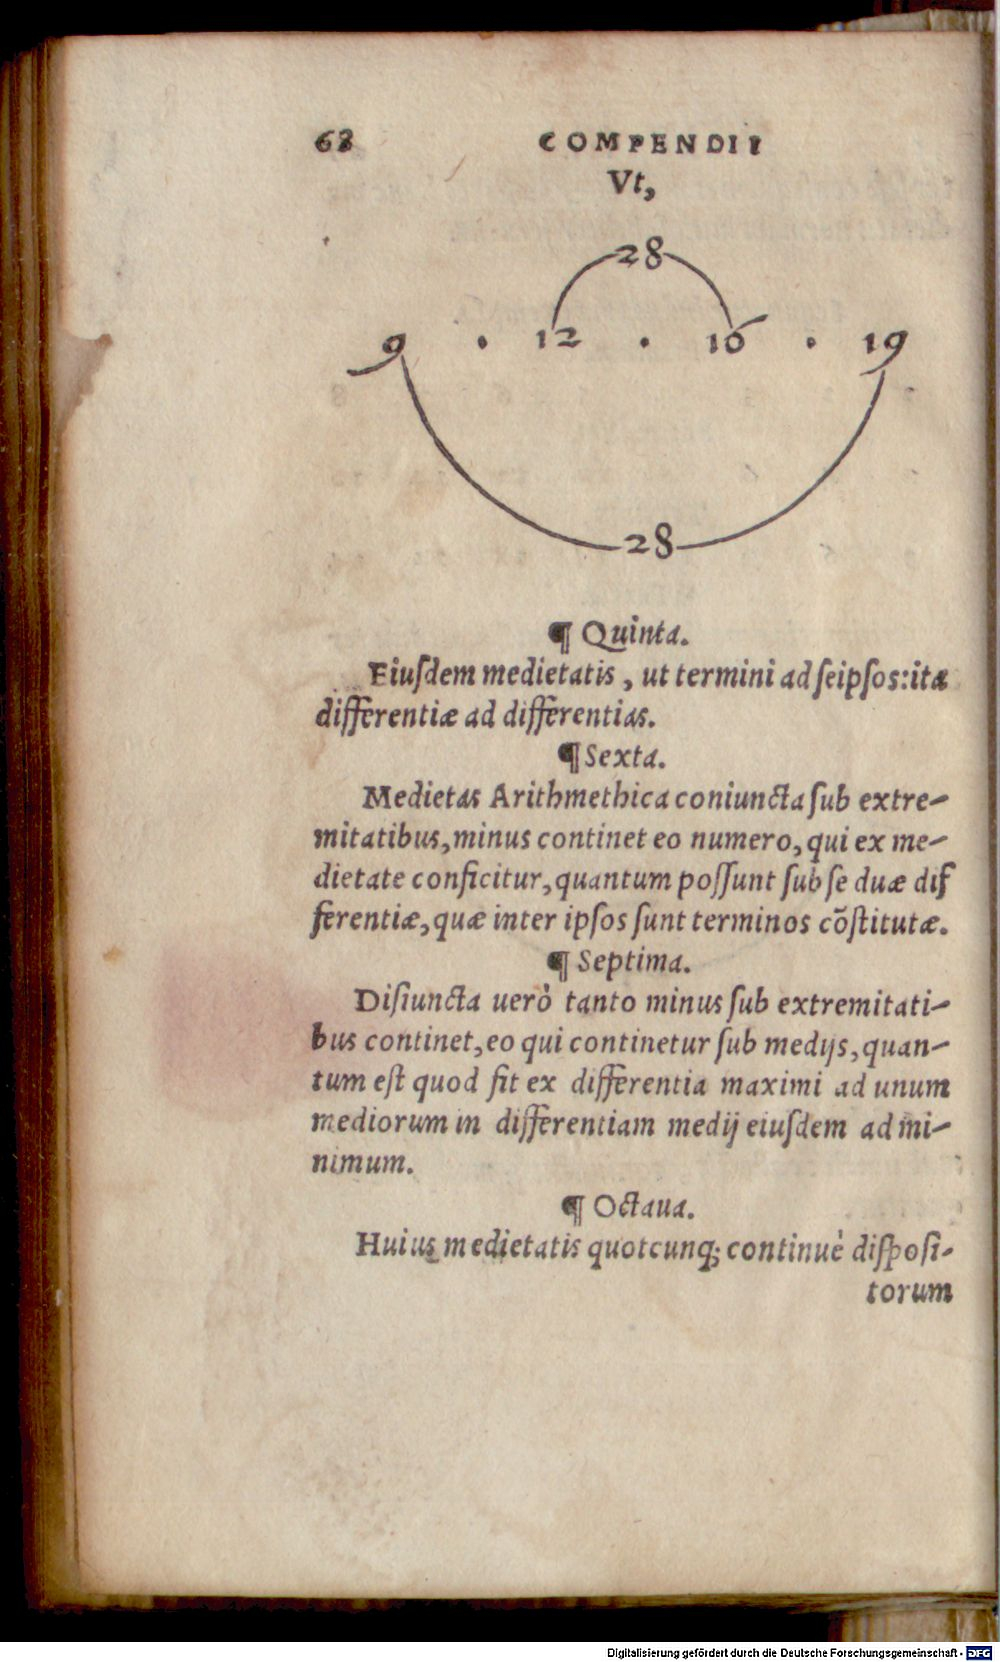 68 COMPENDII
Vt,
28
9 . 12 . 16 . 19
28
¶ Quinta.
Eiuſdem medietatis, ut termini ad ſeipſos: ita
differentiæ ad differentias.
¶ Sexta.
Medietas Arithmethica coniuncta ſub extre-
mitatibus, minus continet eo numero, qui ex me-
dietate conficitur, quantum poſſunt ſub ſe duæ dif
ferentiæ, quæ inter ipſos ſunt terminos cõſtitutæ.
¶ Septima.
Diſiuncta uerò tanto minus ſub extremitati-
bus continet, eo qui continetur ſub medijs, quan-
tum eſt quod fit ex differentia maximi ad unum
mediorum in differentiam medij eiuſdem ad mi-
nimum.
¶ Octaua.
Huius medietatis quotcunq; continuè diſpoſi-
torum
Digitalisierung gefördert durch die Deutsche Forschungsgemeinschaft - DFG